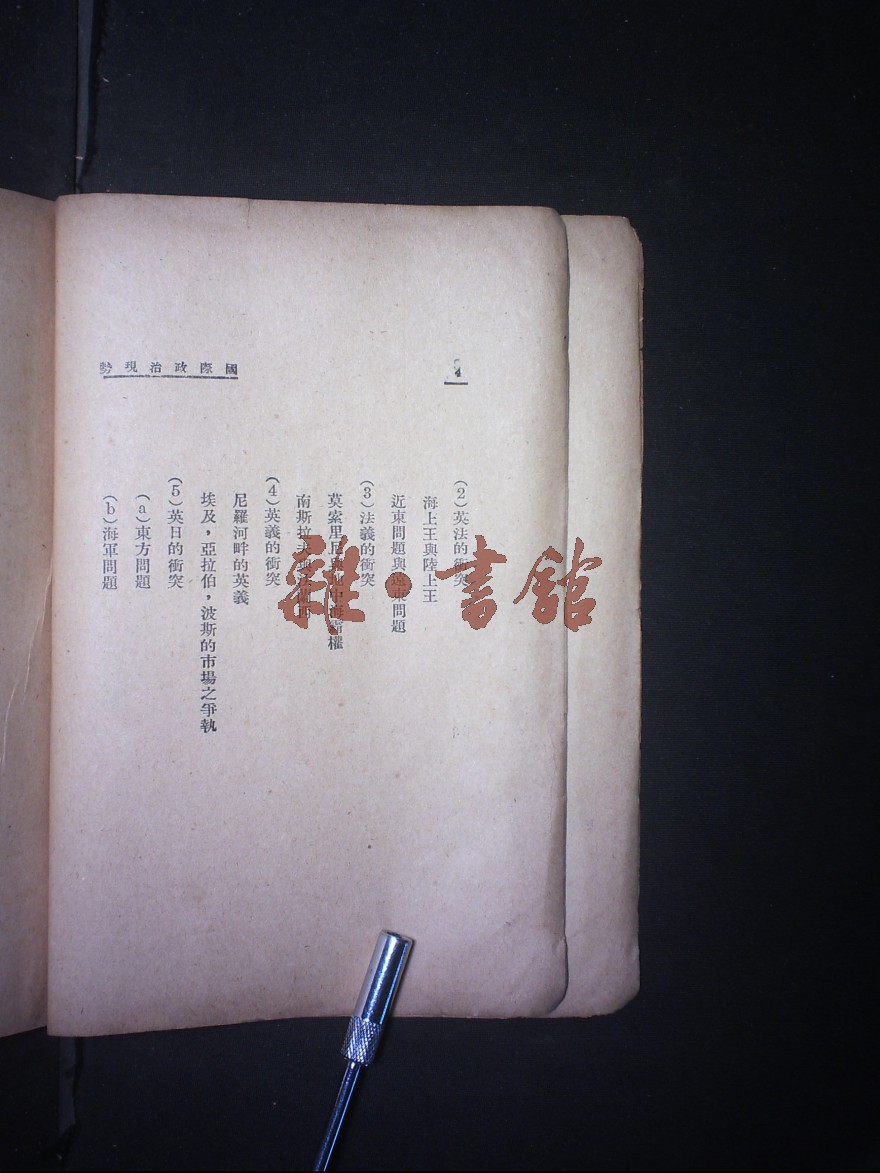 國際政治現勢
4
(2)英法的衝突
海上王與陸上王
近東問題與遠東問題
(3)法義的衝突
莫索里尼與地中海霸權
南斯拉夫與法蘭西
(4)英義的衝突
尼羅河畔的英義
埃及，亞拉伯，波斯的市場之爭執
(5)英日的衝突
(a)東方問題
(b)海軍問題
雜·書館